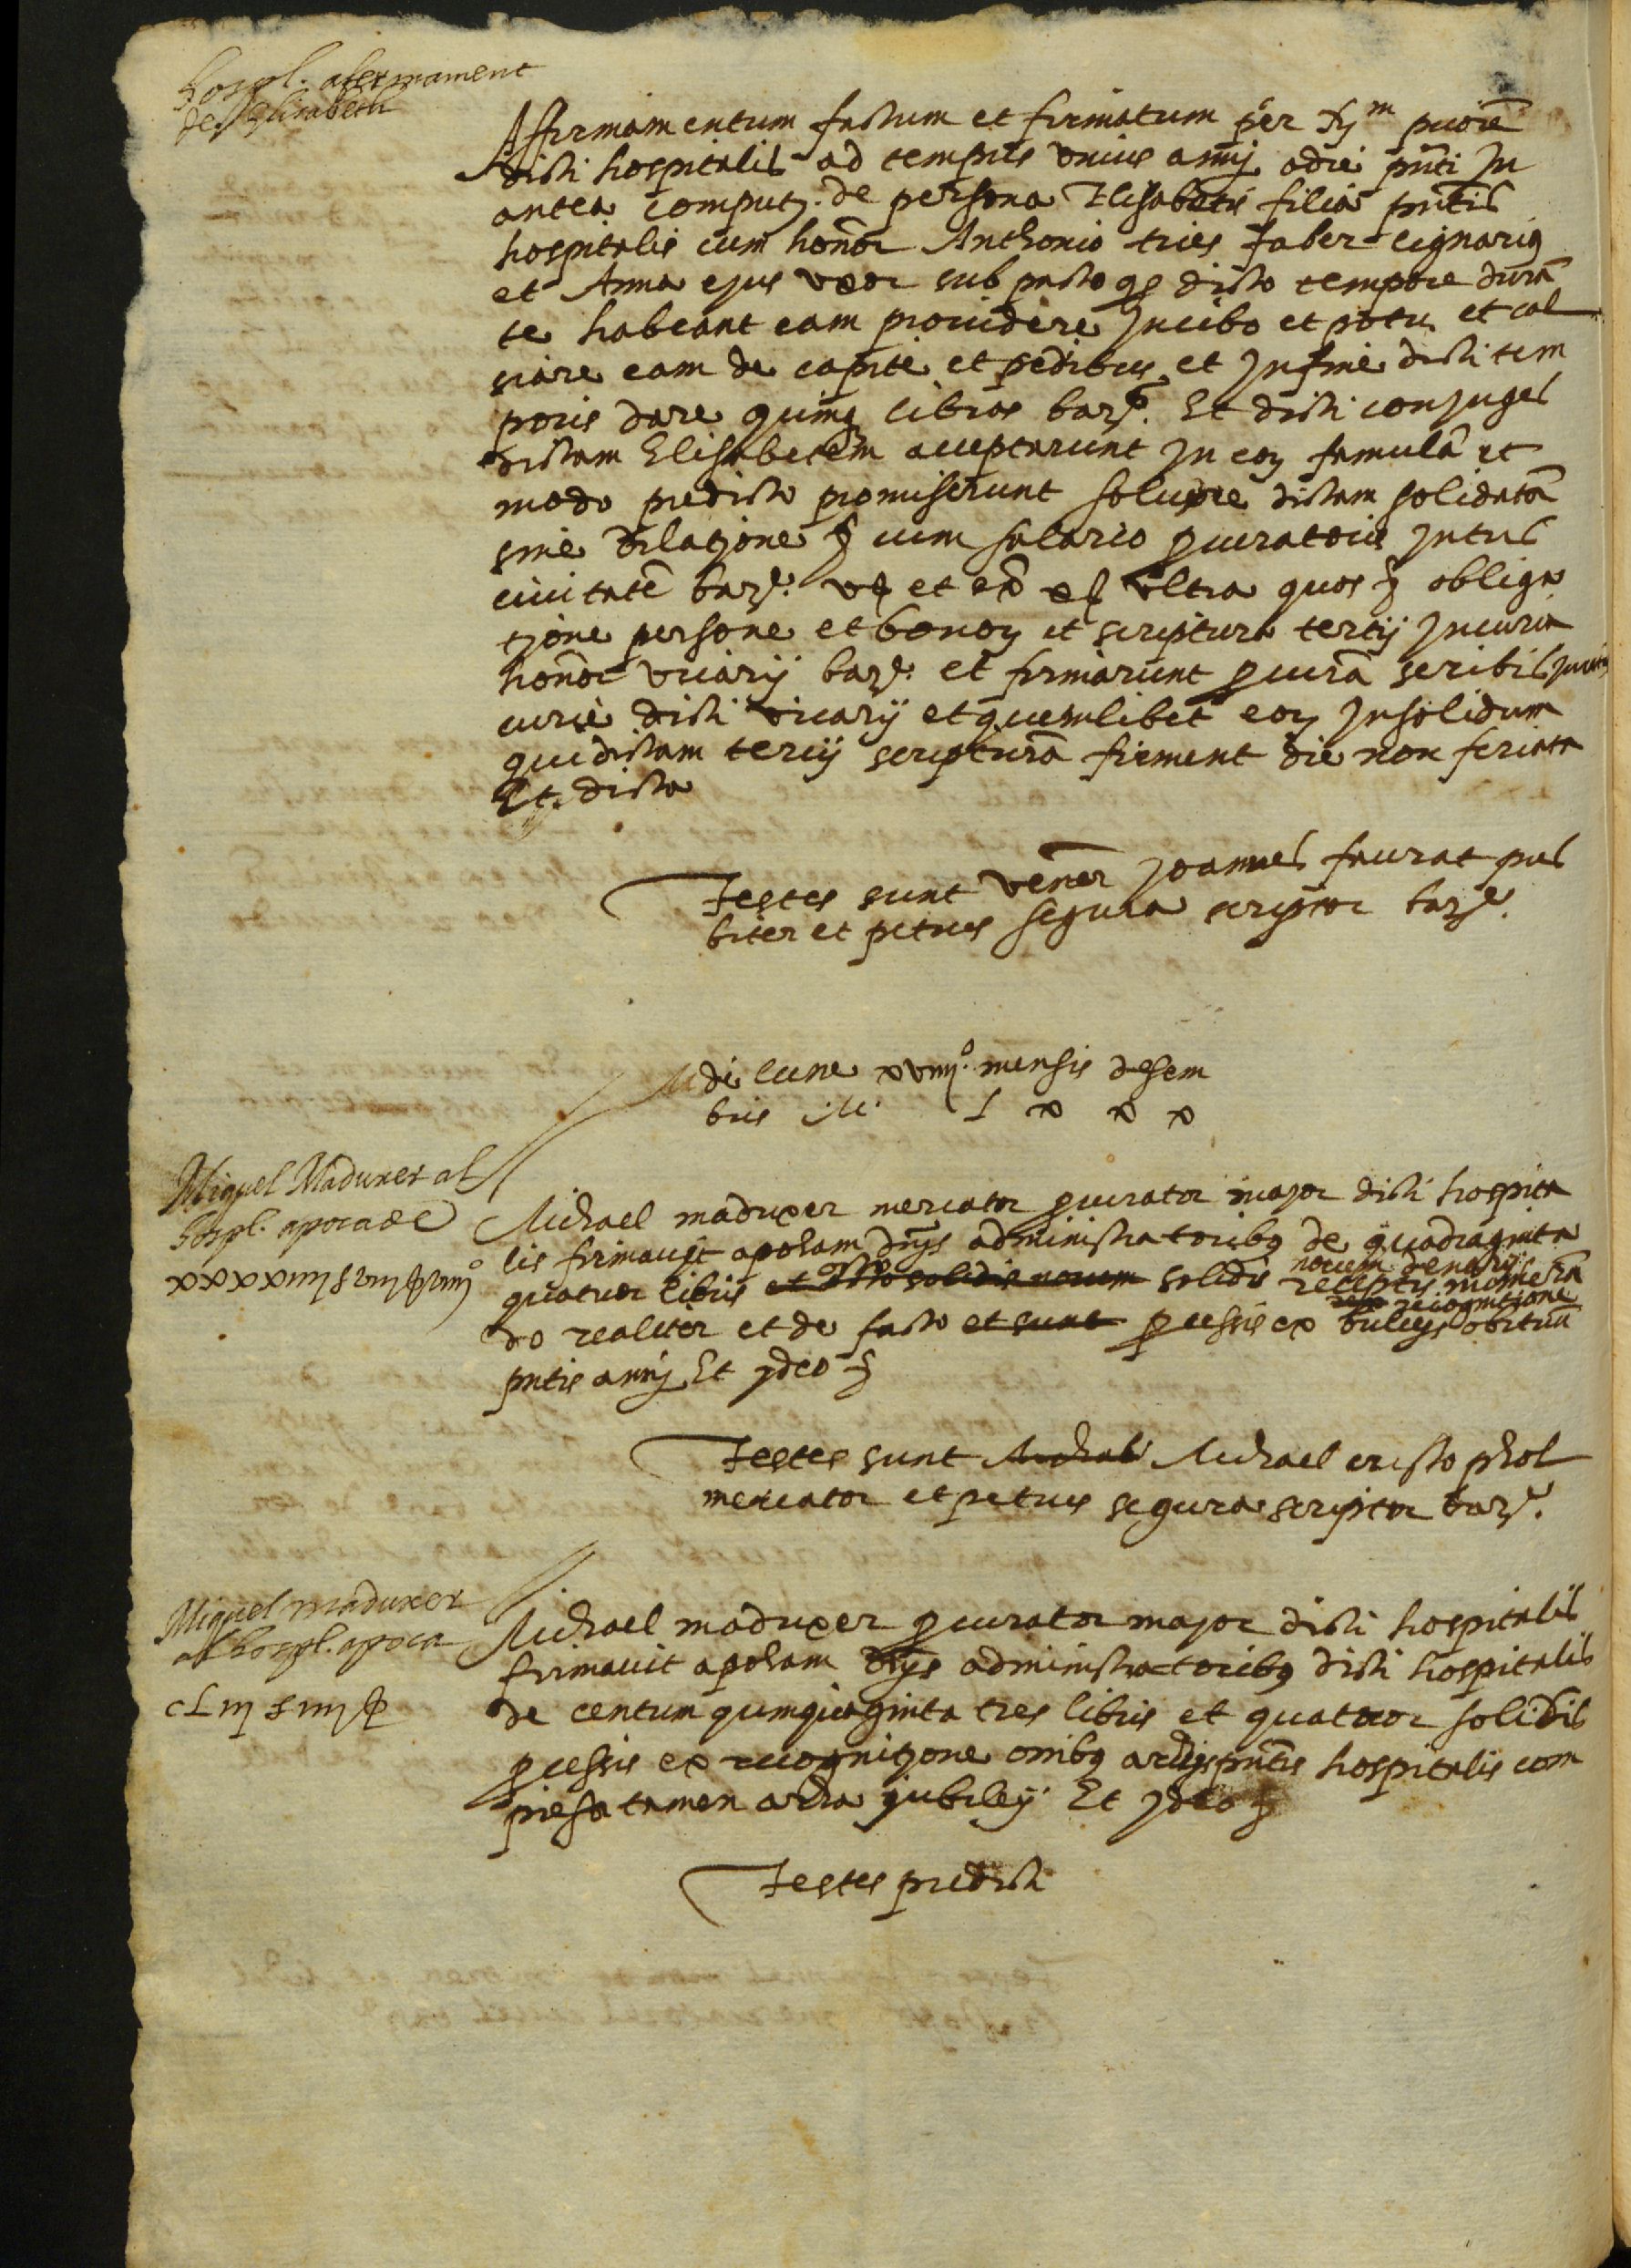 hospl. afermament
de Elisabeth
Affirmamentum factum et firmatum per dn̄m priorē
dicti hospitalis ad tempus unius anny adie pn̄ti in
antea comput. de persona Elisabetis filia pn̄tis
hospitalis cum honor Anthonio tries faber lignariꝰ
et Anna ejus uxor sub pacto qꝫ dicto tempore durā
te habeant eam providere in cibo et potu et cal
siare eam de capite et pedibus et in fine dicti tem
poris dare quinqꝫ libras barꝫ. Et dicti conjuges
dictam Elisabetem acceptarunt in eoꝝ famulā et
modo predicto promiserunt solvere dictam solidatā
sine dilatione et cum salario procuratoris intus
civitatē barꝫ. vs et ex xs ultra quos et obliga
tione persone et bonoꝝ et scriptura tertij in curia
honor vicarij barꝫ. et firmarunt procurā scribis
curie dicti vicarij et quemlibet eoꝝ insolidum
qui dictam tercij scripturā firment die non feriata
Et dicta
Testes sunt vener Joannes faurat pres
biter et petrus segura scriptor barꝫ.
die lune xviiij.º mensis desem
bris M. L x x x
Miquel Maduxer al
hospl. apoca de
xxxxiiij s viiij
Michael maduxer mercator procurator major dicti hospita
lis firmavit apocam dn̄ys administratoribꝰ de quadraginta
quatuor libris et octo solidis novem solidis novem denarijs receptis numerā
do realiter et de facto et sunt processis ex recognitione buletys obituū
pn̄tis anny Et ideo et
Testes sunt Michael Michael cristophol
mercator et petrus segura scriptor barꝫ.
Miquel maduxer
al hospl. apoca
cLiij s iiij
Michael maduxer procurator major dicti hospitalis
firmavit apocam dn̄ys administratoribꝰ dicti hospitalis
de centum quinquaginta tres libris et quatuor solidis
processis ex recognitione omibꝰ archys pn̄tis hospitalis com
presa tamen archa jubiley Et ideo et
Testes predicti